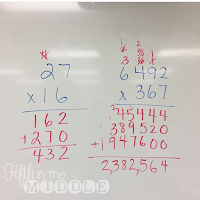 27
x16
162
+270
432
6492
x 367
45444
389520
+1947600
2,382,564
Fifth in the
MIDDLE